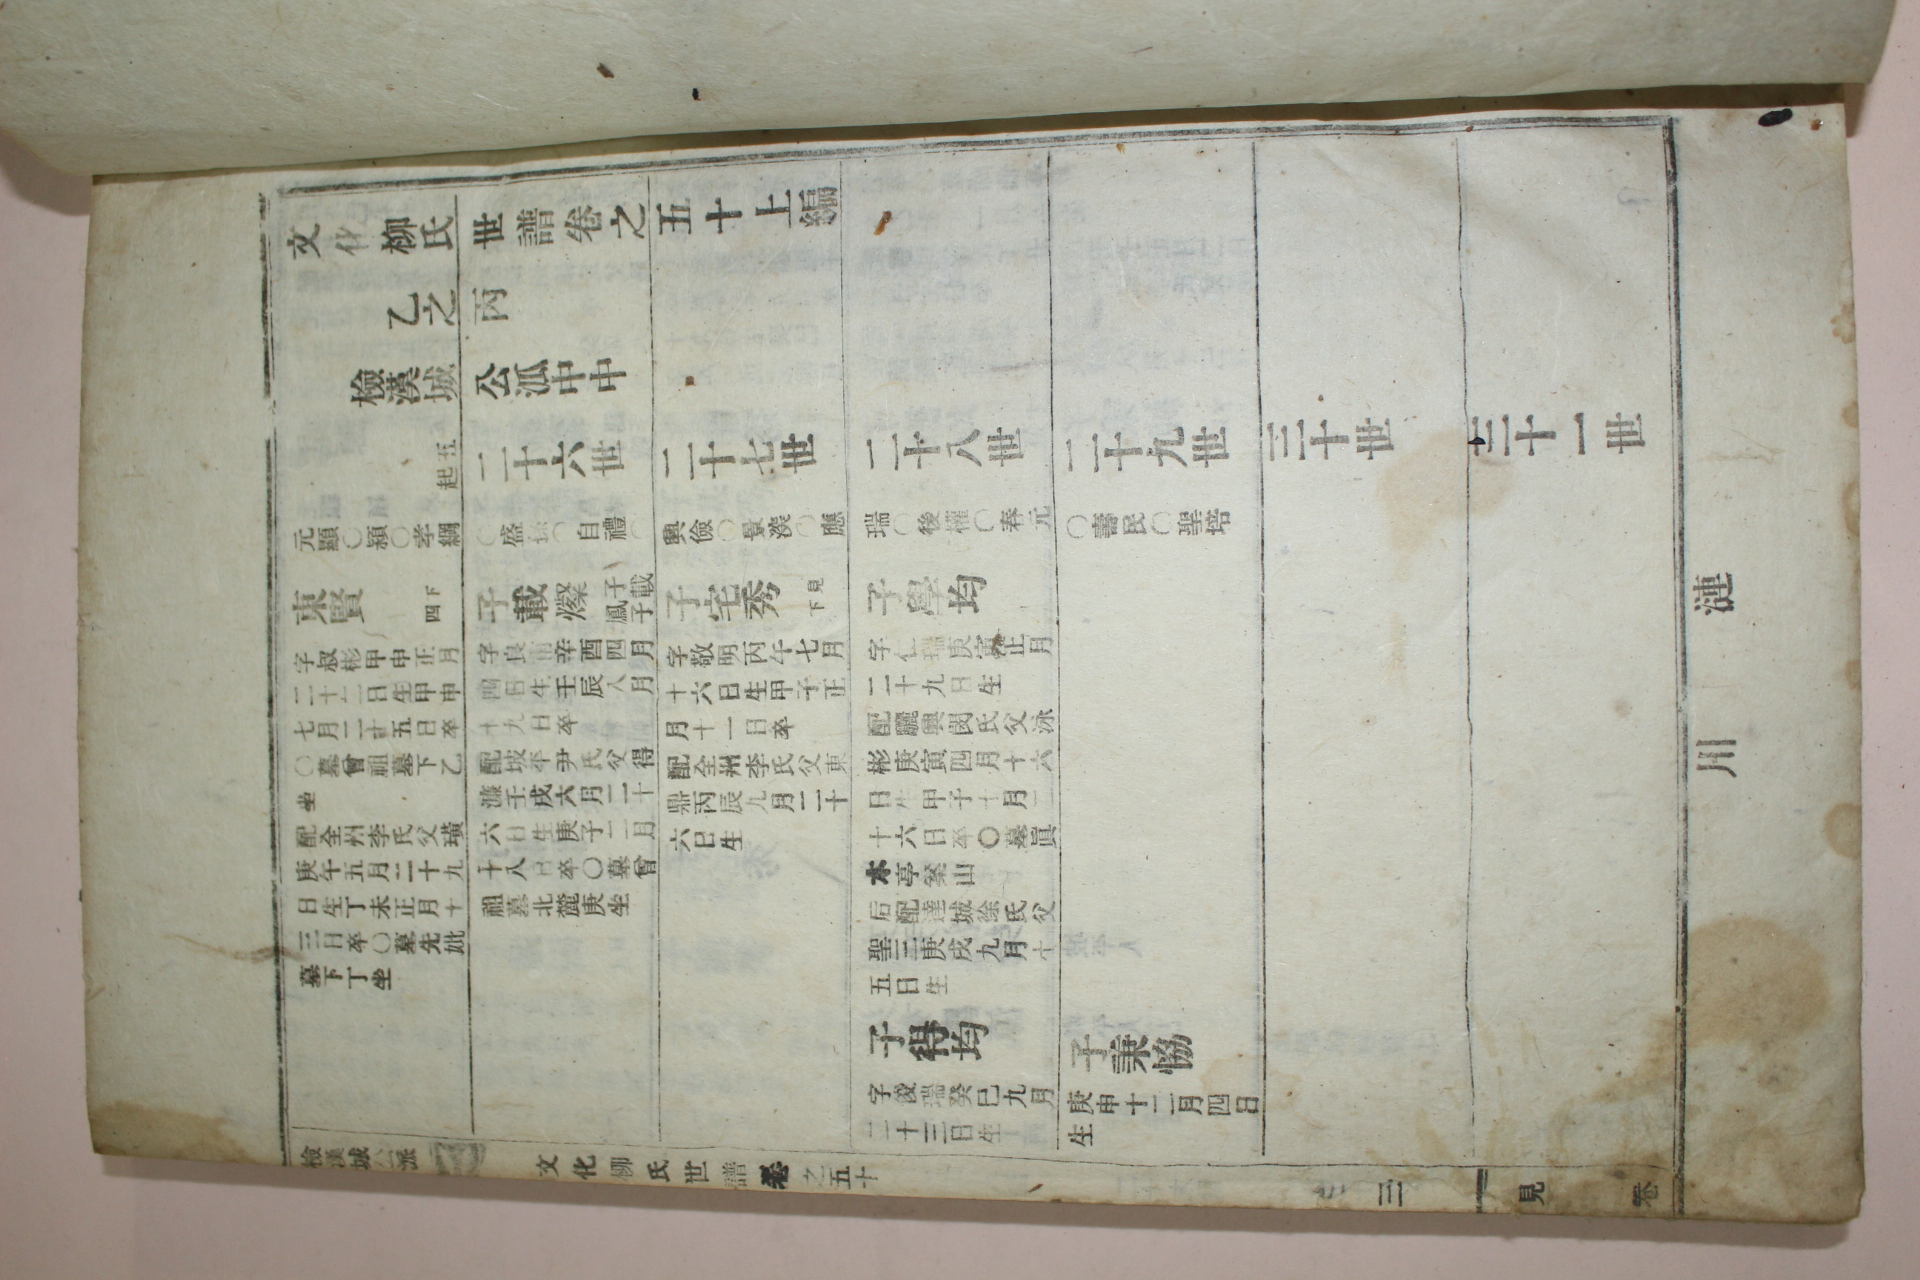 文化柳氏世譜卷之五十上編
乙之丙
檢漢城公派中中
五起
二十六世
二十七世
二十八世
二十九世
三十世
三十一世
元顯○潁○孝綱
○盛孫○自禮○
興儉○景漢○應
瑞○後權○春元
○壽民○聖培
東賢
下四
字叔彬甲申正月
二十二日生甲申
七月二十五日卒
○墓曾祖墓下乙
坐
配全州李氏父璜
庚午五月二十九
日生丁未正月十
三日卒○墓先妣
墓下丁坐
子載燦
子載鳳子
字良甫辛酉四月
四日生壬辰八月
十九日卒
配坡平尹氏父得
濂壬戌六月二十
六日生庚子二月
十八日卒○墓曾
祖墓北麓庚坐
子宅秀
見下
字敬明丙午七月
十六日生甲子正
月十一日卒
配全州李氏父東
鼎丙辰九月二十
六日生
子學均
字仁瑞庚寅正月
二十九日生
配驪興閔氏父泳
彬庚寅四月十六
日生甲子十月二
十六日卒○墓眞
木亭案山
后配達城徐氏父
聖三庚戌九月十
五日生
子得均
字俊瑞癸巳九月
二十三日生
子秉恊
庚申十二月四日
生
檢漢城公派
文化柳氏世譜卷之五十
三
見卷
漣川